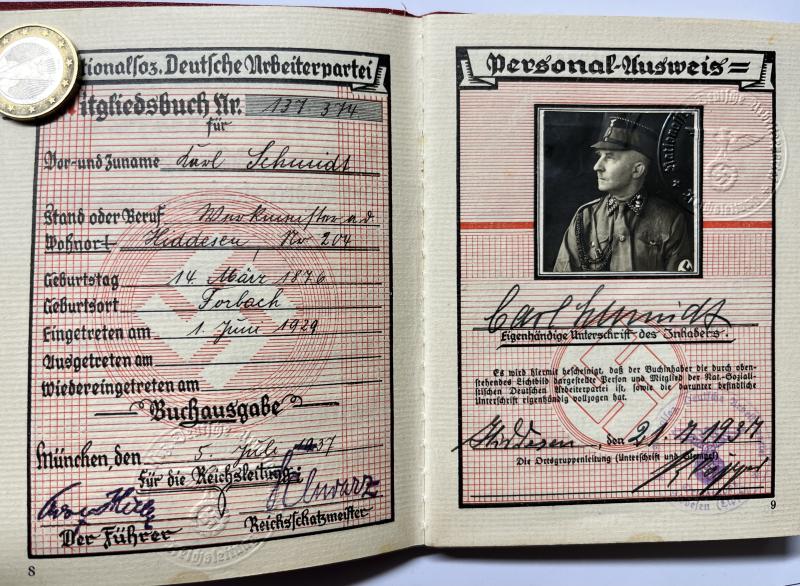 Nationalsoz. Deutsche Arbeiterpartei
Mitgliedsbuch Nr. 137 374
für
Vor- und Zuname Karl Schmidt
Stand oder Beruf Werkmeister a.d.
Wohnort Hiddesen, Nr 204
Geburtstag 14. März 1876
Geburtsort Forbach
Eingetreten am 1. Juni 1929
Ausgetreten am
Wiedereingetreten am
Buchausgabe
München, den 5. Juli 1937
Für die Reichsleitung:
Schwarz
Der Führer Reichsschatzmeister
8
Personal-Ausweis
Carl Schmidt
Eigenhändige Unterschrift des Inhabers.
Es wird hiermit bescheinigt, daß der Buchinhaber die durch oben-
stehendes Lichtbild dargestellte Person und Mitglied der Nat.-Soziali-
stischen Deutschen Arbeiterpartei ist, sowie die darunter befindliche
Unterschrift eigenhändig vollzogen hat.
Hiddesen, den 21.7.1937
Die Ortsgruppenleitung (Unterschrift und Stempel)
9